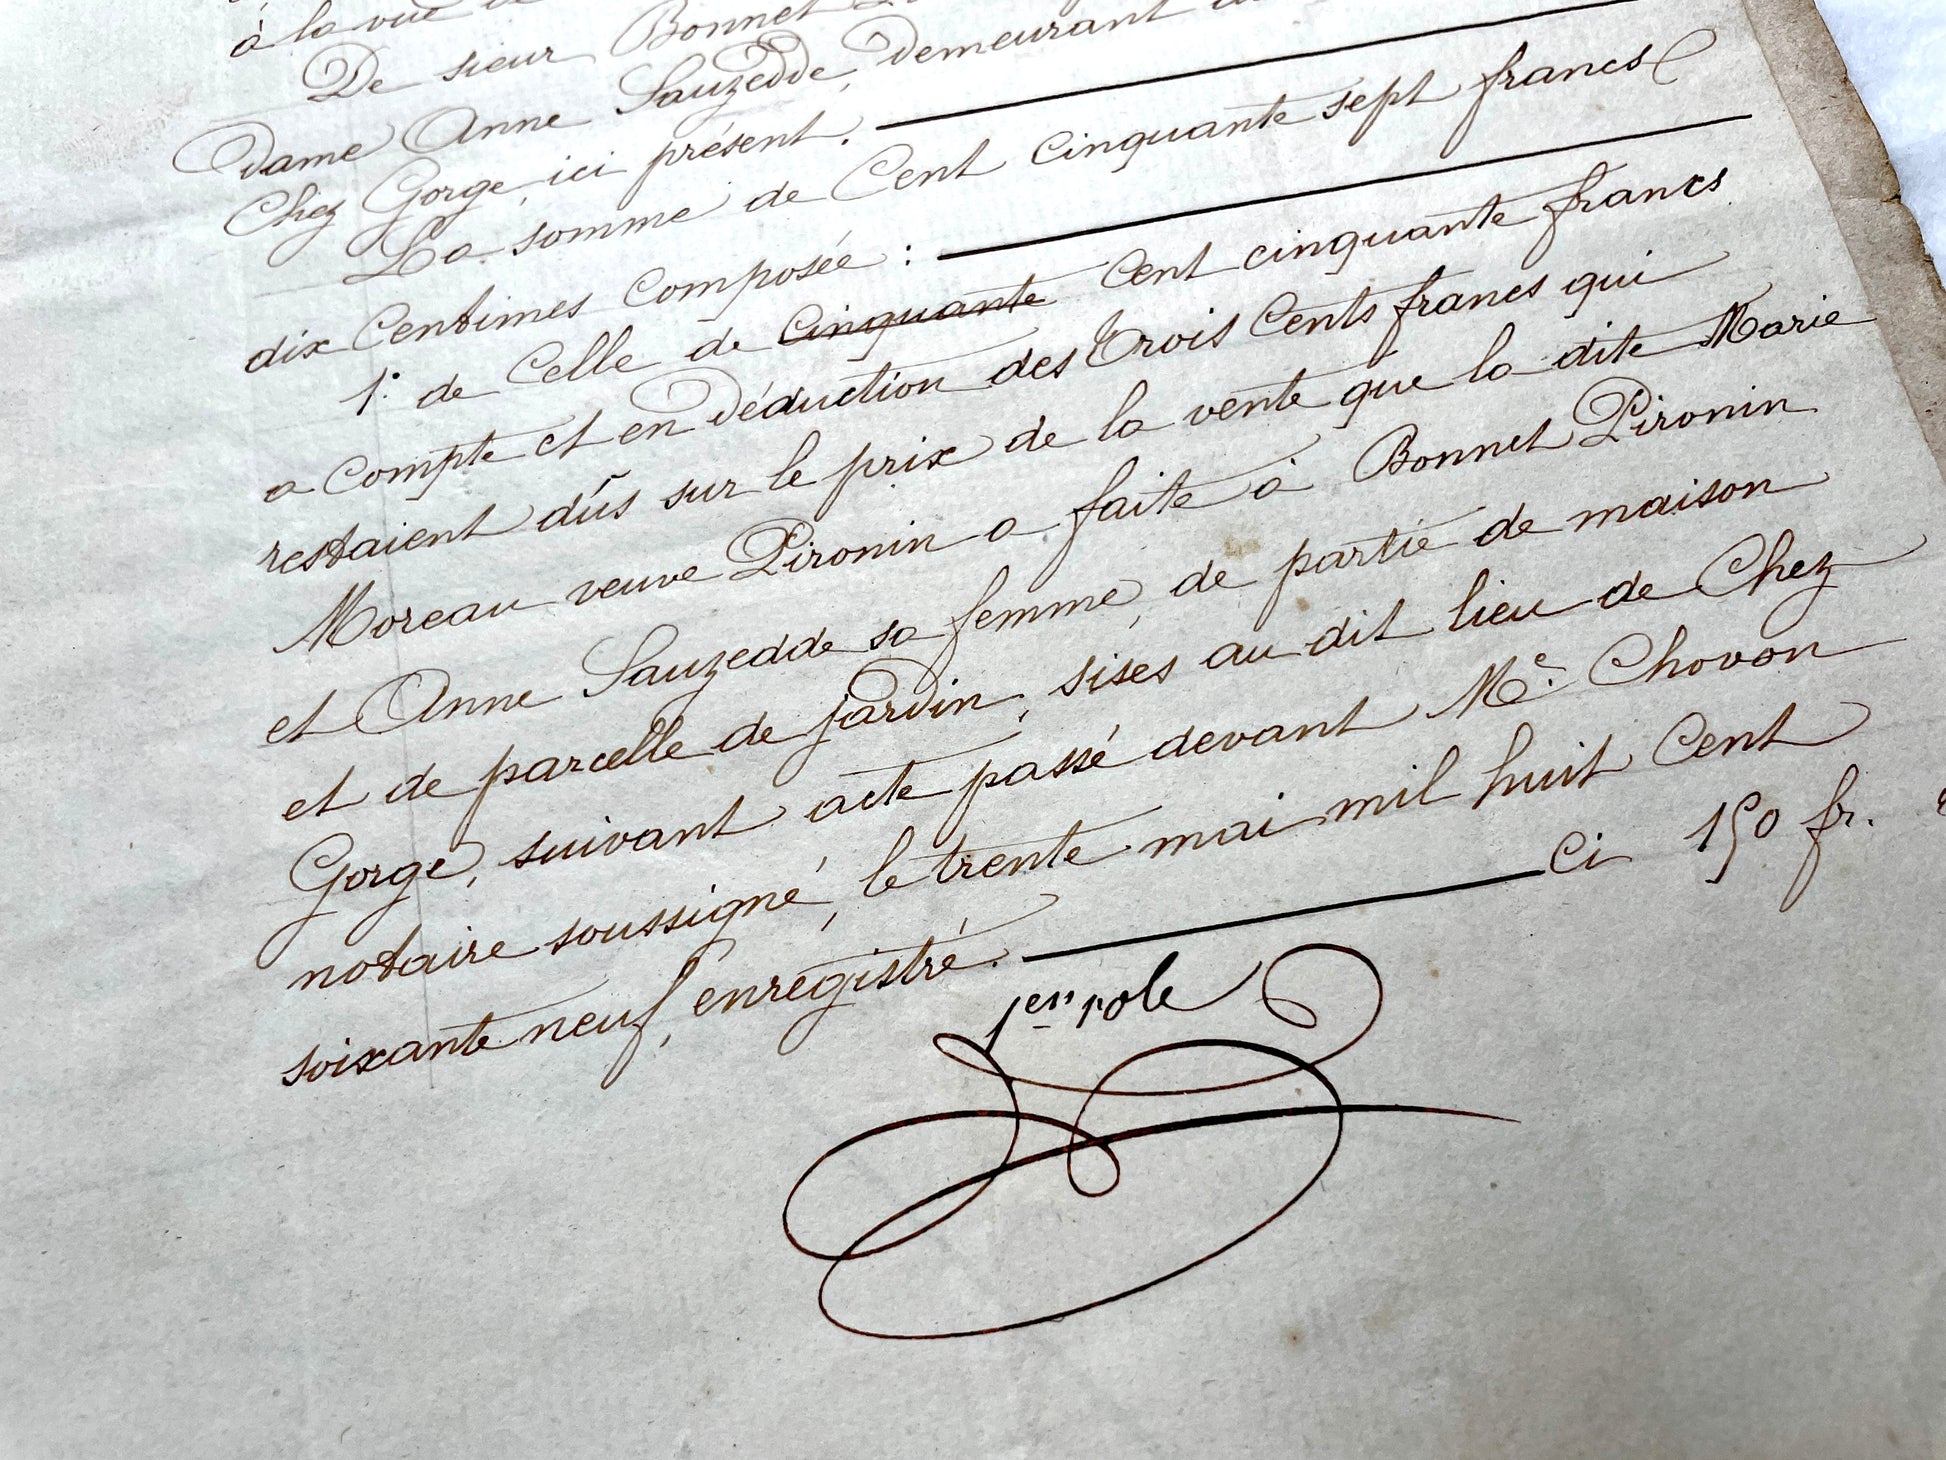 à la vue
De sieur Bonnet
Dame Anne Sauzedde, demeurant
Chez Gorge, ici présent.
La somme de Cent Cinquante sept francs
dix Centimes Composée :
1° de Celle de Cinquante Cent cinquante francs
a Compte et en déduction des Trois Cents francs qui
restaient dûs sur le prix de la vente que la dite Marie
Moreau veuve Pironin a faite à Bonnet Pironin
et Anne Sauzedde sa femme, de partie de maison
et de parcelle de jardin, sises au dit lieu de Chez
Gorge, suivant acte passé devant Me. Chovon
notaire soussigné, le trente mai mil huit Cent
soixante neuf, enregistré. Ci 150 fr.
1er role